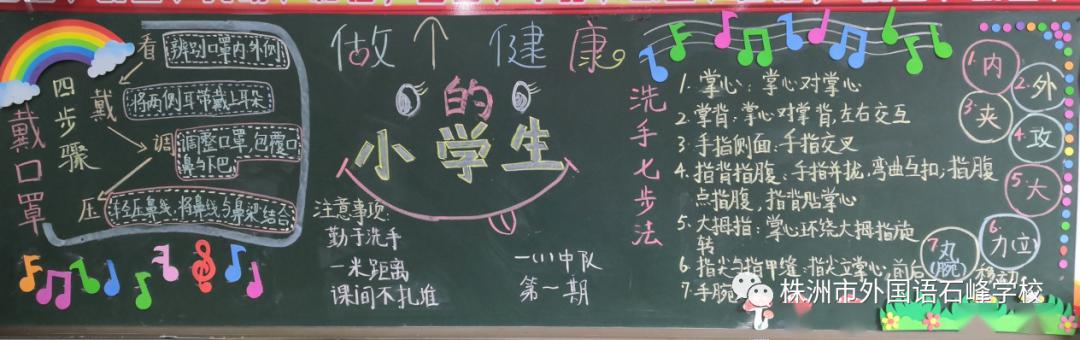 戴口罩
四步骤
看 辨别口罩内外侧
戴 将两侧耳带戴上耳朵
调 调整口罩,包覆口
鼻与下巴
压 轻压鼻线,将鼻线与鼻梁结合
做个健康
的
小学生
注意事项:
勤于洗手
一米距离
课间不扎堆
一(1)中队
第一期
洗手七步法
1. 掌心:掌心对掌心
2. 掌背:掌心对掌背,左右交互
3. 手指侧面:手指交叉
4. 指背指腹:手指并拢,弯曲互扣,指腹
点指腹,指背贴掌心
5. 大拇指:掌心环绕大拇指旋
转
6. 指尖与指甲缝:指尖立掌心,前后
移动
7. 手腕
1.内
2.外
3.夹
4.攻
5.大
6.力位
7.丸
(腕)
株洲市外国语石峰学校